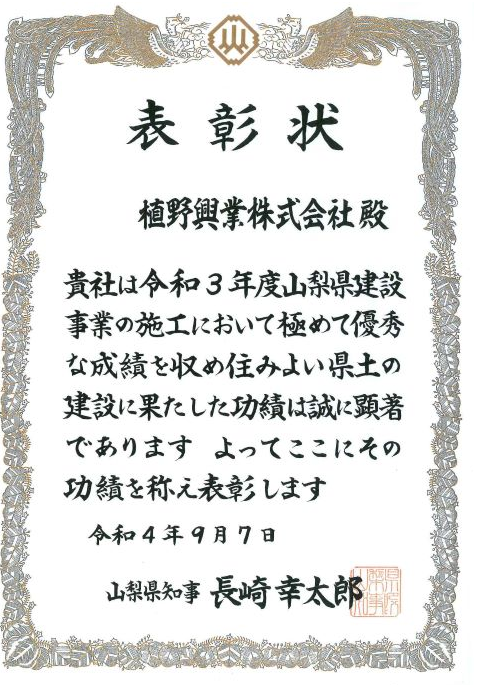 表彰状
植野興業株式会社 殿
貴社は令和3年度山梨県建設
事業の施工において極めて優秀
な成績を収め住みよい県土の
建設に果たした功績は誠に顕著
であります よってここにその
功績を称え表彰します
令和4年9月7日
山梨県知事 長崎幸太郎